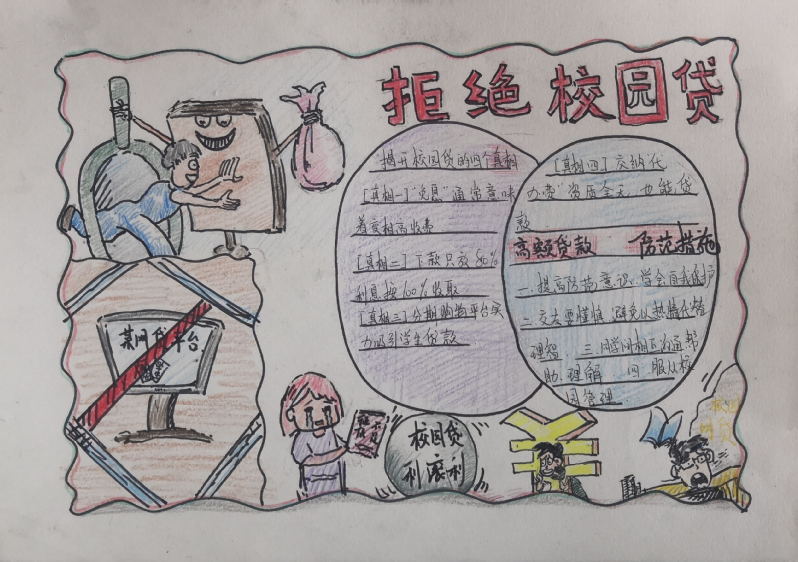 拒绝校园贷
揭开校园贷的四个真相
[真相一]"免息"通常意味
着变相高收费
[真相二]下款只有80%
利息按100%收取
[真相三]分期购物平台实
为吸引学生贷款
[真相四]交纳代
办费"资质全无,也能贷
款
高额贷款 防范措施
一.提高防范意识.学会自我保护
二.交友要谨慎,避免以热情代替
理智. 三.同学间相互沟通帮
助.理解 四.服从校
园管理
某网贷平台
校园贷
利滚利